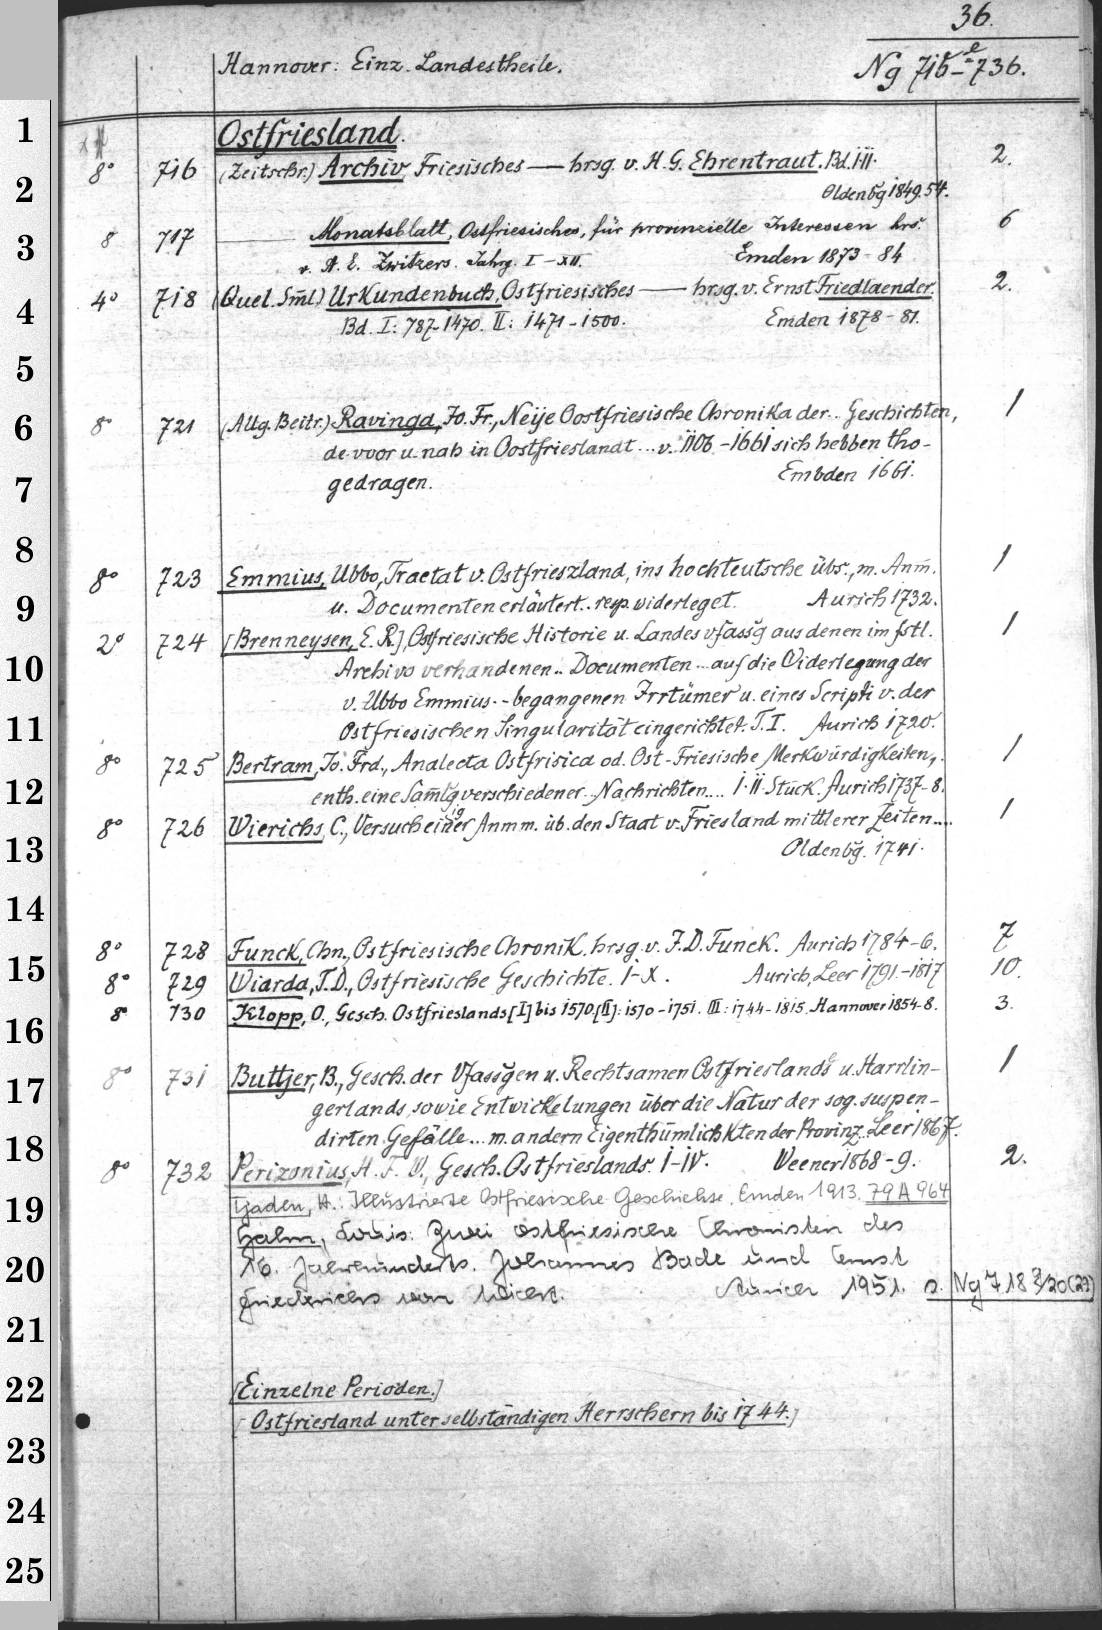 36.
Hannover: Einz. Landestheile. Ng 716-736.
1
Ostfriesland.
8° 716 (Zeitschr.) Archiv Friesisches — hrsg. v. H. G. Ehrentraut. Bd. i ii. 2.
2
Oldenbg 1849. 54.
3
8 717 Monatsblatt, Ostfriesisches, für provinzielle Interessen hrs. 6
v. A. E. Zwitzers. Jahrg. I - XII. Emden 1873 - 84
4
4° 718 (Quel. Sml) Urkundenbuch, Ostfriesisches — hrsg. v. Ernst Friedlaender. 2.
Bd. I: 787-1470. II: 1471-1500. Emden 1878-81.
5
6
8° 721 (Allg. Beitr.) Ravinga, Jo. Fr., Neije Oostfriesische Chronika der .. Geschichten, 1
de voor u. nah in Oostfrieslandt ... v. 1106 - 1661 sich hebben tho-
7
gedragen. Embden 1661.
8
8° 723 Emmius, Ubbo, Tractat v. Ostfrieszland, ins hochteutsche übs., m. Anm. 1
9
u. Documenten erläutert .. resp. widerleget. Aurich 1732.
2° 724 [Brenneysen, E. R.], Ostfriesische Historie u. Landes vfassg aus denen im fstl. 1
10
Archivo verhandenen .. Documenten ... auf die Widerlegung der
v. Ubbo Emmius .. begangenen Irrtümer u. eines Scripti v. der
11
Ostfriesischen Singularität eingerichtet. T. I. Aurich 1720.
8° 725 Bertram, Jo. Frd., Analecta Ostfrisica od. Ost-Friesische Merkwürdigkeiten, 1
12
enth. eine Samlg verschiedener .. Nachrichten.... I. II. Stück. Aurich 1737-8.
8° 726 Wierichs, C., Versuch einiger Anmm. üb. den Staat v. Friesland mittlerer Zeiten.... 1
13
Oldenbg. 1741.
14
8° 728 Funck, Chn., Ostfriesische Chronik. hrsg. v. J. D. Funck. Aurich 1784-6. 7
15
8° 729 Wiarda, T. D., Ostfriesische Geschichte. I-X. Aurich, Leer 1791.-1817 10.
8° 730 Klopp, O., Gesch. Ostfrieslands [I] bis 1570. [II]: 1570-1751. III: 1744-1815. Hannover 1854-8. 3.
16
8° 731 Buttjer, B., Gesch. der Vfassgen u. Rechtsamen Ostfrieslands u. Harrlin- 1
17
gerlands, sowie Entwickelungen über die Natur der sog. suspen-
18
dirten Gefälle ... m. andern Eigenthümlichkten der Provinz. Leer 1867.
8° 732 Perizonius, H. F. W., Gesch. Ostfrieslands. I-IV. Weener 1868-9. 2.
19
Tjaden, H.: Illustrierte Ostfriesische Geschichte. Emden 1913. 79 A 964
Hahn, Louis: Zwei ostfriesische Chronisten des
20
16. Jahrhunderts. Johannes Bade und Ernst
Friederichs von Wicht. Aurich 1951. s. Ng 718 3/20(27)
21
22
[Einzelne Perioden.]
[Ostfriesland unter selbständigen Herrschern bis 1744.]
23
24
25